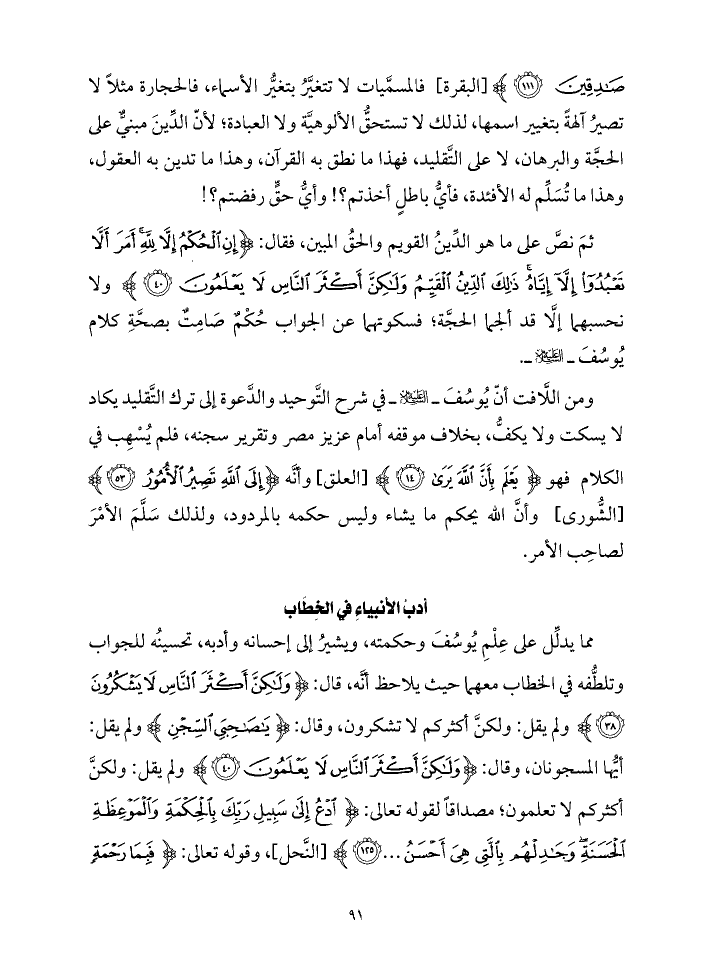 صَـٰدِقِينَ ﴿١١١﴾ ﴾ [البقرة] فالمسمَّيات لا تتغيَّرُ بتغيُّر الأسماء، فالحجارة مثلاً لا
تصيرُ آلهةً بتغيير اسمها، لذلك لا تستحقُّ الألوهيَّة ولا العبادة؛ لأنّ الدِّينَ مبنيٌّ على
الحجَّة والبرهان، لا على التَّقليد، فهذا ما نطق به القرآن، وهذا ما تدين به العقول،
وهذا ما تُسَلِّم له الأفئدة، فأيُّ باطلٍ أخذتم؟! وأيُّ حقٍّ رفضتم؟!
ثمَ نصَّ على ما هو الدِّينُ القويم والحقُ المبين، فقال: ﴿إِنِ ٱلْحُكْمُ إِلَّا لِلَّهِ ۚ أَمَرَ أَلَّا
تَعْبُدُوٓا۟ إِلَّآ إِيَّاهُ ۚ ذَٰلِكَ ٱلدِّينُ ٱلْقَيِّمُ وَلَـٰكِنَّ أَكْثَرَ ٱلنَّاسِ لَا يَعْلَمُونَ ﴿٤٠﴾ ﴾ ولا
نحسبهما إلَّا قد ألجما الحجَّة؛ فسكوتهما عن الجواب حُكْمٌ صَامِتٌ بصحَّةِ كلام
يُوسُفَ ـ عليه السلام ـ.
ومن اللَّافت أنّ يُوسُفَ ـ عليه السلام ـ في شرح التَّوحيد والدَّعوة إلى ترك التَّقليد يكاد
لا يسكت ولا يكفُّ، بخلاف موقفه أمام عزيز مصر وتقرير سجنه، فلم يُسْهِب في
الكلام فهو ﴿ يَعْلَم بِأَنَّ ٱللَّهَ يَرَىٰ ﴿١٤﴾ ﴾ [العلق] وأنَّه ﴿إِلَى ٱللَّهِ تَصِيرُ ٱلْأُمُورُ ﴿٥٣﴾ ﴾
[الشُّورى] وأنَّ الله يحكم ما يشاء وليس حكمه بالمردود، ولذلك سَلَّمَ الأمْرَ
لصاحِب الأمر.
أدبُ الأنبياءِ في الخِطَاب
مما يدلِّل على عِلْمِ يُوسُفَ وحكمته، ويشيرُ إلى إحسانه وأدبه، تحسينُه للجواب
وتلطُّفه في الخطاب معهما حيث يلاحظ أنَّه، قال: ﴿ وَلَـٰكِنَّ أَكْثَرَ ٱلنَّاسِ لَا يَشْكُرُونَ
﴿٣٨﴾ ﴾ ولم يقل: ولكنَّ أكثركم لا تشكرون، وقال: ﴿ يَـٰصَـٰحِبَىِ ٱلسِّجْنِ ﴾ ولم يقل:
أيُّها المسجونان، وقال: ﴿وَلَـٰكِنَّ أَكْثَرَ ٱلنَّاسِ لَا يَعْلَمُونَ ﴿٤٠﴾ ﴾ ولم يقل: ولكنَّ
أكثركم لا تعلمون؛ مصداقاً لقوله تعالى: ﴿ ٱدْعُ إِلَىٰ سَبِيلِ رَبِّكَ بِٱلْحِكْمَةِ وَٱلْمَوْعِظَةِ
ٱلْحَسَنَةِ ۖ وَجَـٰدِلْهُم بِٱلَّتِى هِىَ أَحْسَنُ ...﴿١٢٥﴾ ﴾ [النَّحل]، وقوله تعالى: ﴿ فَبِمَا رَحْمَةٍ
٩١